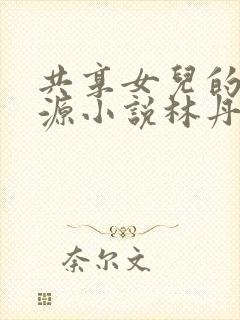 共享女兒的
源小說林丹
奈尔文